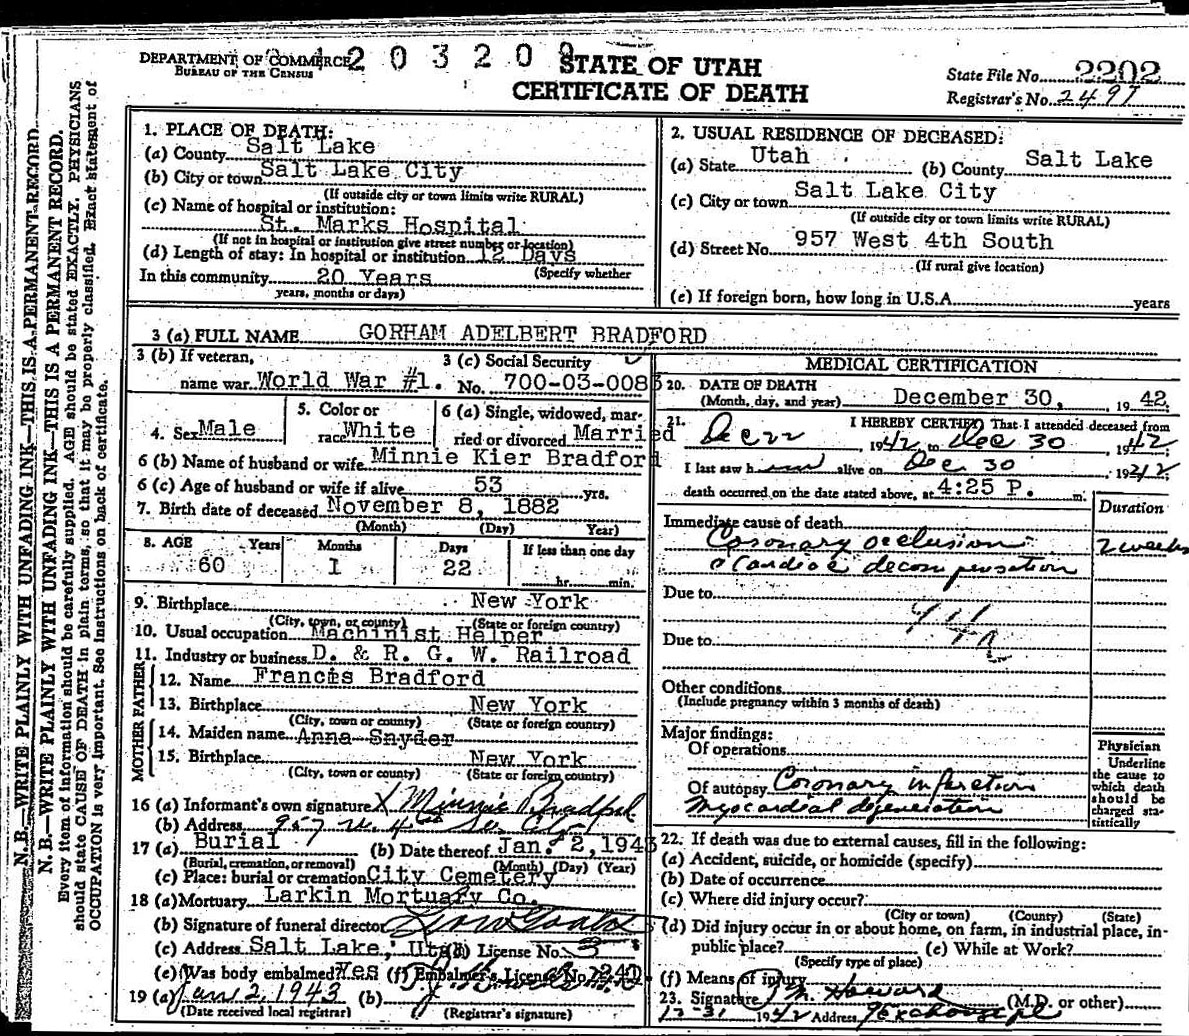 DEPARTMENT OF COMMERCE
BUREAU OF THE CENSUS
203209
STATE OF UTAH
CERTIFICATE OF DEATH
State File No. 2202
Registrar's No. 2497
N.B.—WRITE PLAINLY WITH UNFADING INK—THIS IS A PERMANENT RECORD.
N. B.—WRITE PLAINLY WITH UNFADING INK—THIS IS A PERMANENT RECORD.
Every item of information should be carefully supplied. AGE should be stated EXACTLY. PHYSICIANS
should state CAUSE OF DEATH in plain terms, so that it may be properly classified. Exact statement of
OCCUPATION is very important. See instructions on back of certificate.
1. PLACE OF DEATH:
(a) County Salt Lake
(b) City or town Salt Lake City
(If outside city or town limits write RURAL)
(c) Name of hospital or institution:
St. Marks Hospital
(If not in hospital or institution give street number or location)
(d) Length of stay: In hospital or institution 12 Days
(Specify whether
In this community 20 Years
years, months or days)
2. USUAL RESIDENCE OF DECEASED:
(a) State Utah (b) County Salt Lake
(c) City or town Salt Lake City
(If outside city or town limits write RURAL)
(d) Street No. 957 West 4th South
(If rural give location)
(e) If foreign born, how long in U.S.A. years
3 (a) FULL NAME GORHAM ADELBERT BRADFORD
3 (b) If veteran,
name war World War #1.
3 (c) Social Security
No. 700-03-0083
4. Sex Male
5. Color or
race White
6 (a) Single, widowed, mar-
ried or divorced Married
6 (b) Name of husband or wife Minnie Kier Bradford
6 (c) Age of husband or wife if alive 53 yrs.
7. Birth date of deceased November 8, 1882
(Month) (Day) Year)
8. AGE Years Months Days If less than one day
60 1 22 hr. min.
9. Birthplace New York
(City, town, or county) (State or foreign country)
10. Usual occupation Machinist Helper
11. Industry or business D. & R. G. W. Railroad
FATHER
12. Name Francis Bradford
13. Birthplace New York
(City, town or county) (State or foreign country)
MOTHER
14. Maiden name Anna Snyder
15. Birthplace New York
(City, town or county) (State or foreign country)
16 (a) Informant's own signature X Minnie Bradford
(b) Address 957 W. 4th So. City
17 (a) Burial (b) Date thereof Jan. 2, 1943
(Burial, cremation, or removal) (Month) (Day) (Year)
(c) Place: burial or cremation City Cemetery
18 (a) Mortuary Larkin Mortuary Co.
(b) Signature of funeral director
(c) Address Salt Lake, Utah (d) License No. 3
(e) Was body embalmed? Yes (f) Embalmer's License No.
19 (a) Jan 2, 1943 (b)
(Date received local registrar) (Registrar's signature)
MEDICAL CERTIFICATION
20. DATE OF DEATH
(Month, day, and year) December 30, , 19 42.
21. I HEREBY CERTIFY That I attended deceased from
Dec 22 , 1942 to Dec 30 , 1942
I last saw him alive on Dec. 30 , 1942
death occurred on the date stated above, at 4:25 P. m.
Duration
Immediate cause of death
Coronary occlusion 2 weeks
& Cardiac decompensation
Due to
Due to
Other conditions
(Include pregnancy within 3 months of death)
Major findings:
Of operations
Of autopsy Coronary infarction
Myocardial degeneration
Physician
Underline
the cause to
which death
should be
charged sta-
tistically
22. If death was due to external causes, fill in the following:
(a) Accident, suicide, or homicide (specify)
(b) Date of occurrence
(c) Where did injury occur?
(City or town) (County) (State)
(d) Did injury occur in or about home, on farm, in industrial place, in-
public place? (e) While at Work?
(Specify type of place)
(f) Means of injury
23. Signature M. Howard (M.D. or other)
12-31 1942 Address